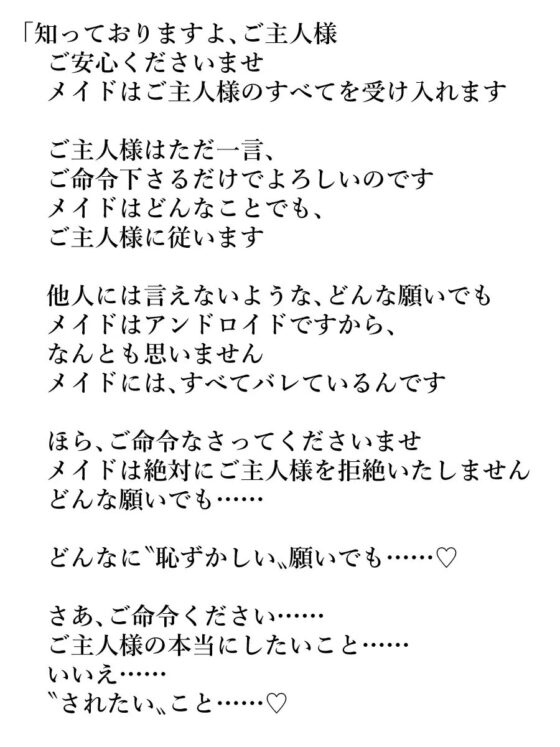 「知っておりますよ、ご主人様
ご安心くださいませ
メイドはご主人様のすべてを受け入れます
ご主人様はただ一言、
ご命令下さるだけでよろしいのです
メイドはどんなことでも、
ご主人様に従います
他人には言えないような、どんな願いでも
メイドはアンドロイドですから、
なんとも思いません
メイドには、すべてバレているんです
ほら、ご命令なさってくださいませ
メイドは絶対にご主人様を拒絶いたしません
どんな願いでも……
どんなに〝恥ずかしい〟願いでも……♡
さあ、ご命令ください……
ご主人様の本当にしたいこと……
いいえ……
〝されたい〟こと……♡